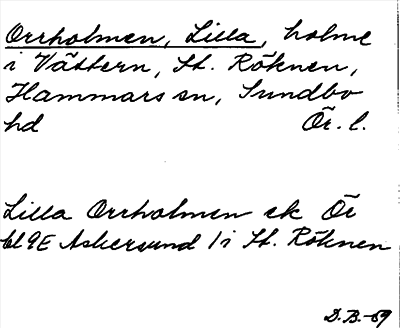 Orrholmen, Lilla, holme
i Vättern, St. Röknen,
Hammars sn, Sundbo
hd Ör. l.
Lilla Orrholmen ek Ör
bl 9E Askersund /i St. Röknen
D.B.-69